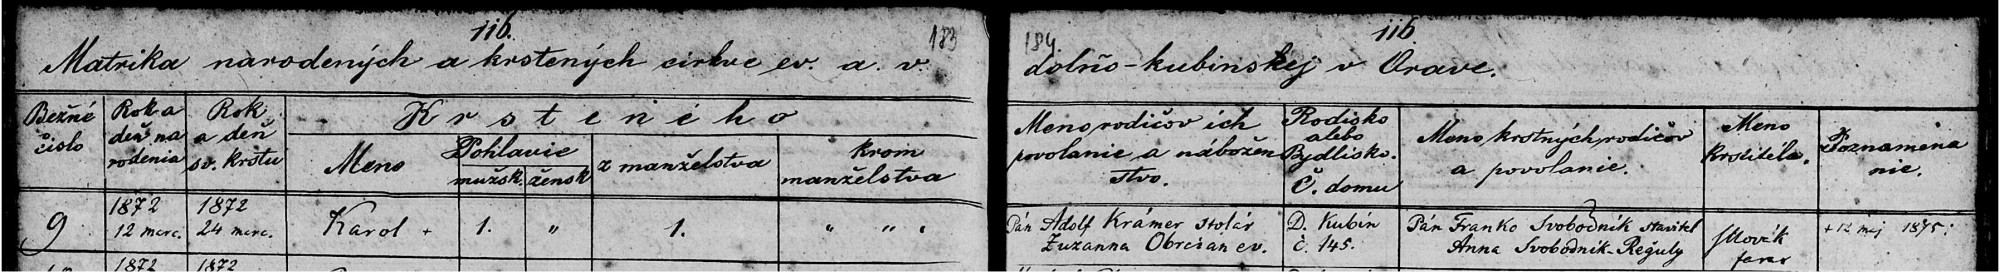 116.
183
Matrika narodených a krstených cirkve ev. a. v.
184.
116
dolňo-kubinskej v Orave.
Bežné číslo
Rok a deň na rodenia
Rok a deň sv. krstu
Krsteného
Meno
Pohlavie
mužsk.
žensk
z manželstva
krom manželstva
Meno rodičov ích povolanie a nábožen stvo.
Rodisko alebo Bydlisko. Č. domu
Meno krstných rodičov a povolanie.
Meno krstitela.
Poznamena nie.
9
1872
12 marc.
1872
24 marc.
Karol +
1.
"
1.
" " "
Pán Adolf Krámer stolár
Zuzanna Obrcian ev.
D. Kubín
č. 145.
Pán Franko Svobodník stavitel
Anna Svobodník-Reguly
farar
+ 12 maj 1875.
1872
1872